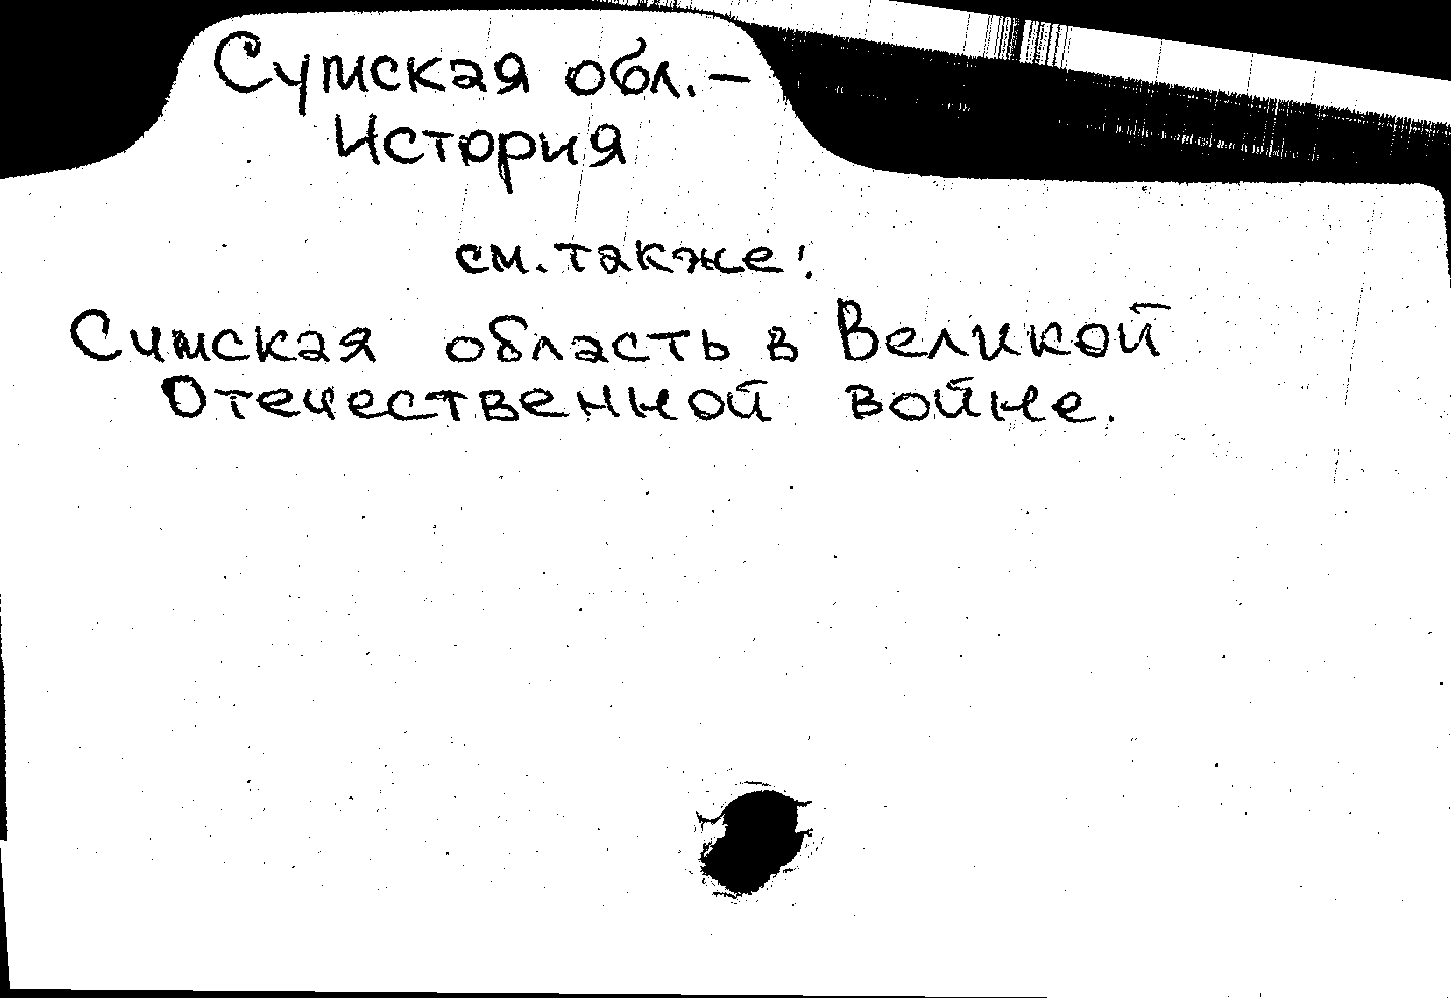 Сумская обл. –
История
см. также:
Сумская область в Великой
Отечественной войне.